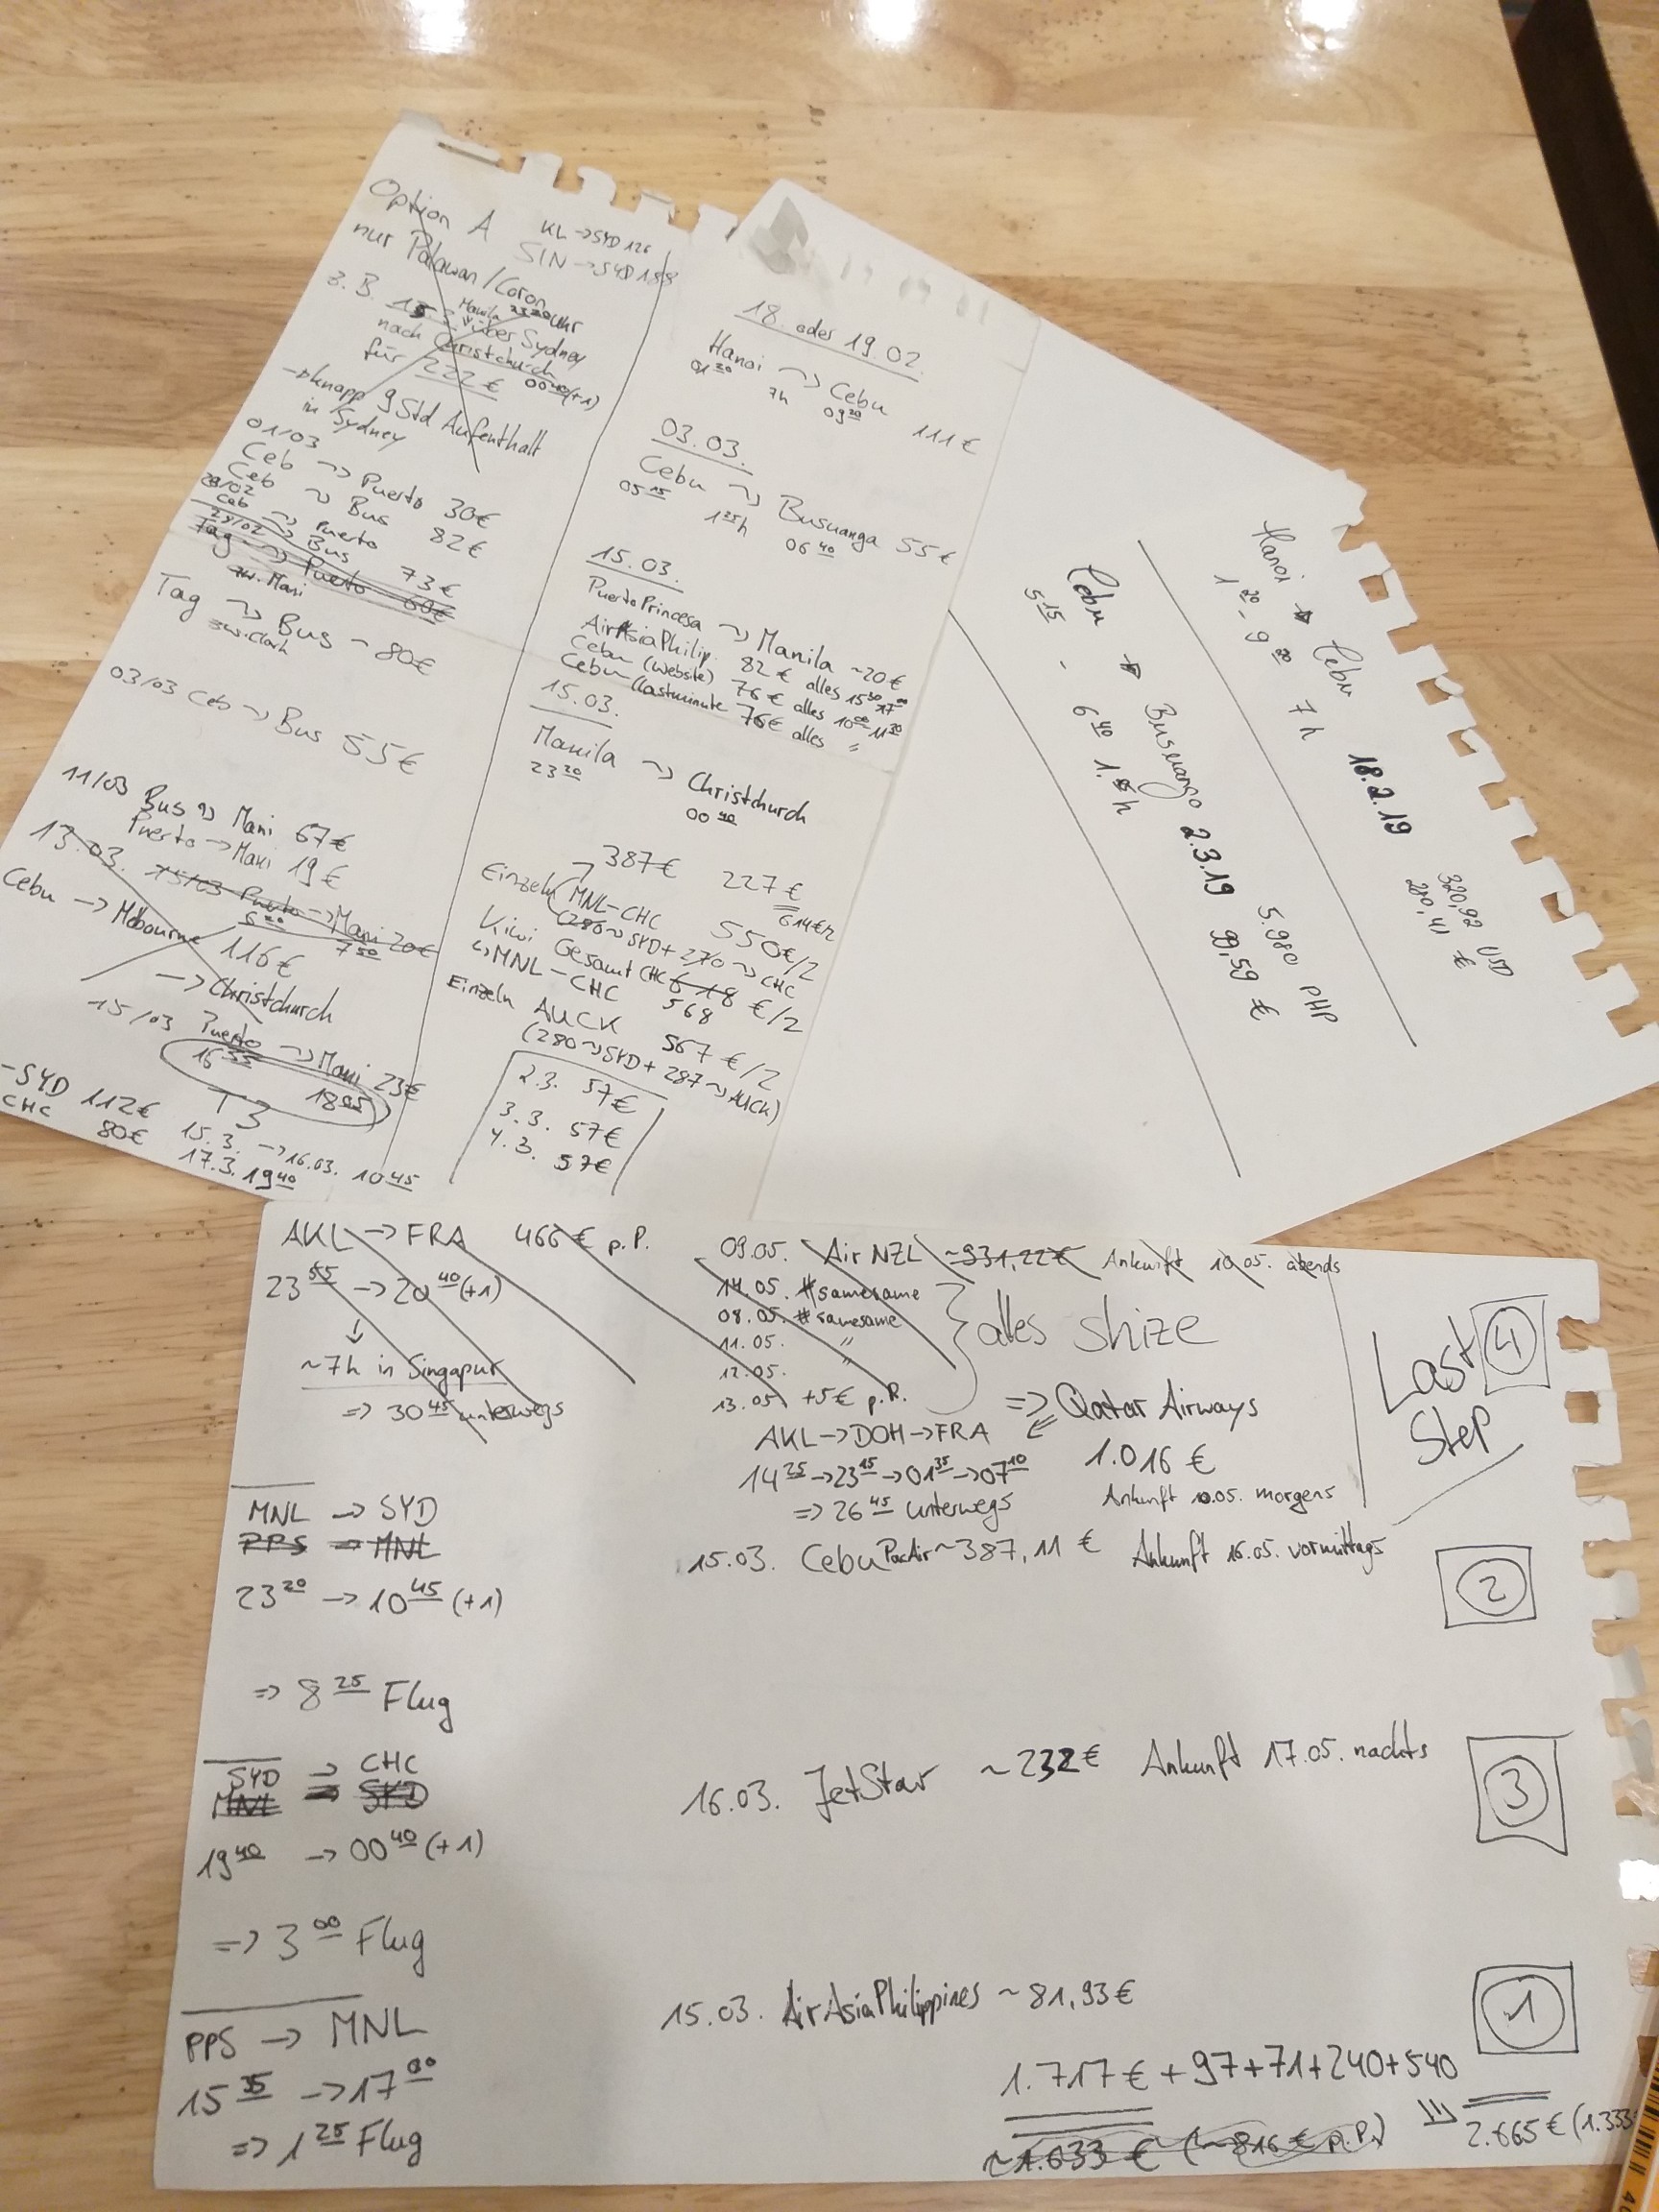 Option A
KL → SYD 126
nur Palawan/Coron
SIN → SYD 188
z.B. 15.3. Manila 23 20 Uhr
über Sydney
nach Christchurch
für 222 € 00 40 (+1)
→ knapp 9 Std Aufenthalt
in Sydney
01/03
Ceb → Puerto 30€
Ceb → Bus 82€
28/02
Ceb → Puerto
28/02 → Bus 73€
Tag → Puerto 60€
zw. Mani
Tag → Bus ~ 80€
zw. Clark
03/03 Ceb → Bus 55€
11/03 Bus → Mani 67€
Puerto → Mani 19€
13.03. 15/03 Puerto → Mani 20€
7 50
Cebu → Melbourne 116€
→ Christchurch
15/03 Puerto → Mani 23€
16 55
T3
-SYD 112€
CHC 80€
15.3. → 16.03. 10 45
17.3. 19 40
18. oder 19.02.
Hanoi → Cebu 111€
01 20 7h 09 20
03.03.
Cebu → Busuanga 55€
05 15 1 25 h 06 40
15.03.
Puerto Princesa → Manila ~20€
AirAsiaPhilip. 82€ alles 15 30 17 00
Cebu (Website) 76€ alles 10 00 11 30
Cebu (lastminute 76€ alles "
15.03.
Manila → Christchurch
23 20 00 40
→ 387€ 227€
614€/2
Einzeln (MNL-CHC 550€/2
(280 → SYD + 270 → CHC
Kiwi Gesamt CHC 618 €/2
↳ MNL-CHC 568
Einzeln AUCK 567 €/2
(280 → SYD + 287 → AUCK)
2.3. 57€
3.3. 57€
4.3. 57€
Hanoi → Cebu 18.2.19 320,92 USD
1 20 - 9 20 7h 280,41 €
Cebu → Busuanga 2.3.19 5.980 PHP
5 15 - 6 40 1. h 99,59 €
AKL → FRA 466 € p.P.
23 55 → 20 40 (+1)
↓
~7h in Singapur
=> 30 45 unterwegs
09.05. Air NZL ~931,22€ Ankunft 10.05. abends
14.05. #samesame
08.05. #samesame
11.05. "
12.05. "
13.05. +5€ p.P.
} alles shize
=> Qatar Airways
AKL → DOH → FRA
1.016 €
14 25 → 23 15 → 01 35 → 07 10
=> 26 45 unterwegs
Ankunft 10.05. morgens
Last
Step
4
MNL → SYD
PPS → MNL
23 20 → 10 45 (+1)
=> 8 25 Flug
15.03. Cebu PacAir ~387,11 € Ankunft 16.05. vormittags
2
SYD → CHC
MNL → SYD
19 40 → 00 40 (+1)
=> 3 00 Flug
16.03. JetStar ~232€ Ankunft 17.05. nachts
3
PPS → MNL
15 35 → 17 00
=> 1 25 Flug
15.03. AirAsiaPhilippines ~81,93€
1
1.717€ + 97+71+240+540
~1.633 € (~816 € p.P.)
2.665€ (1.333